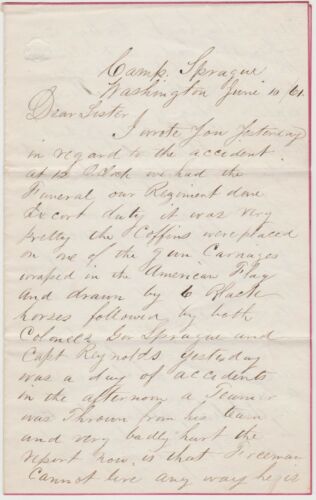 Camp. Sprague
Washington June 10 /61.
Dear Sister
I wrote You Yesterday
in regard to the accident.
at 12 Oclock we had the
Funeral our Regiment done
Escort duty it was very
pretty the Coffins were placed
on one of the Gun Carriages
wraped in the American Flag
and drawn by 6 Black
horses followed by both
Colonels Gov Sprague and
Capt Reynolds Yesterday
was a day of accidents
in the afternoon a Teamer
was Thrown from his team
and very badly hurt the
report now is that Freeman
Cannot live any way he is